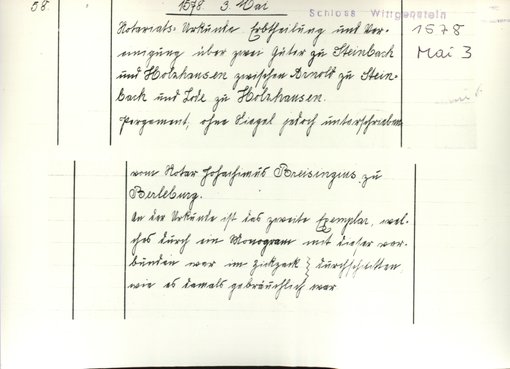 58.
1578 3. Mai
Schloss Wittgenstein
1578
Mai 3
Notariats-Urkunde Erbtheilung und Ver-
einigung über zwei Güter zu Steinbach
und Holzhausen zwischen Arnold zu Stein-
bach und Lode zu Holzhausen.
Pergament, ohne Siegel jedoch unterschrieben
vom Notar Johachimus Breisengius zu
Berleburg.
An der Urkunde ist das zweite Exemplar, wel-
ches durch ein Monogram mit dieser ver-
bunden war im Zickzack durchschnitten
wie es damals gebräuchlich war